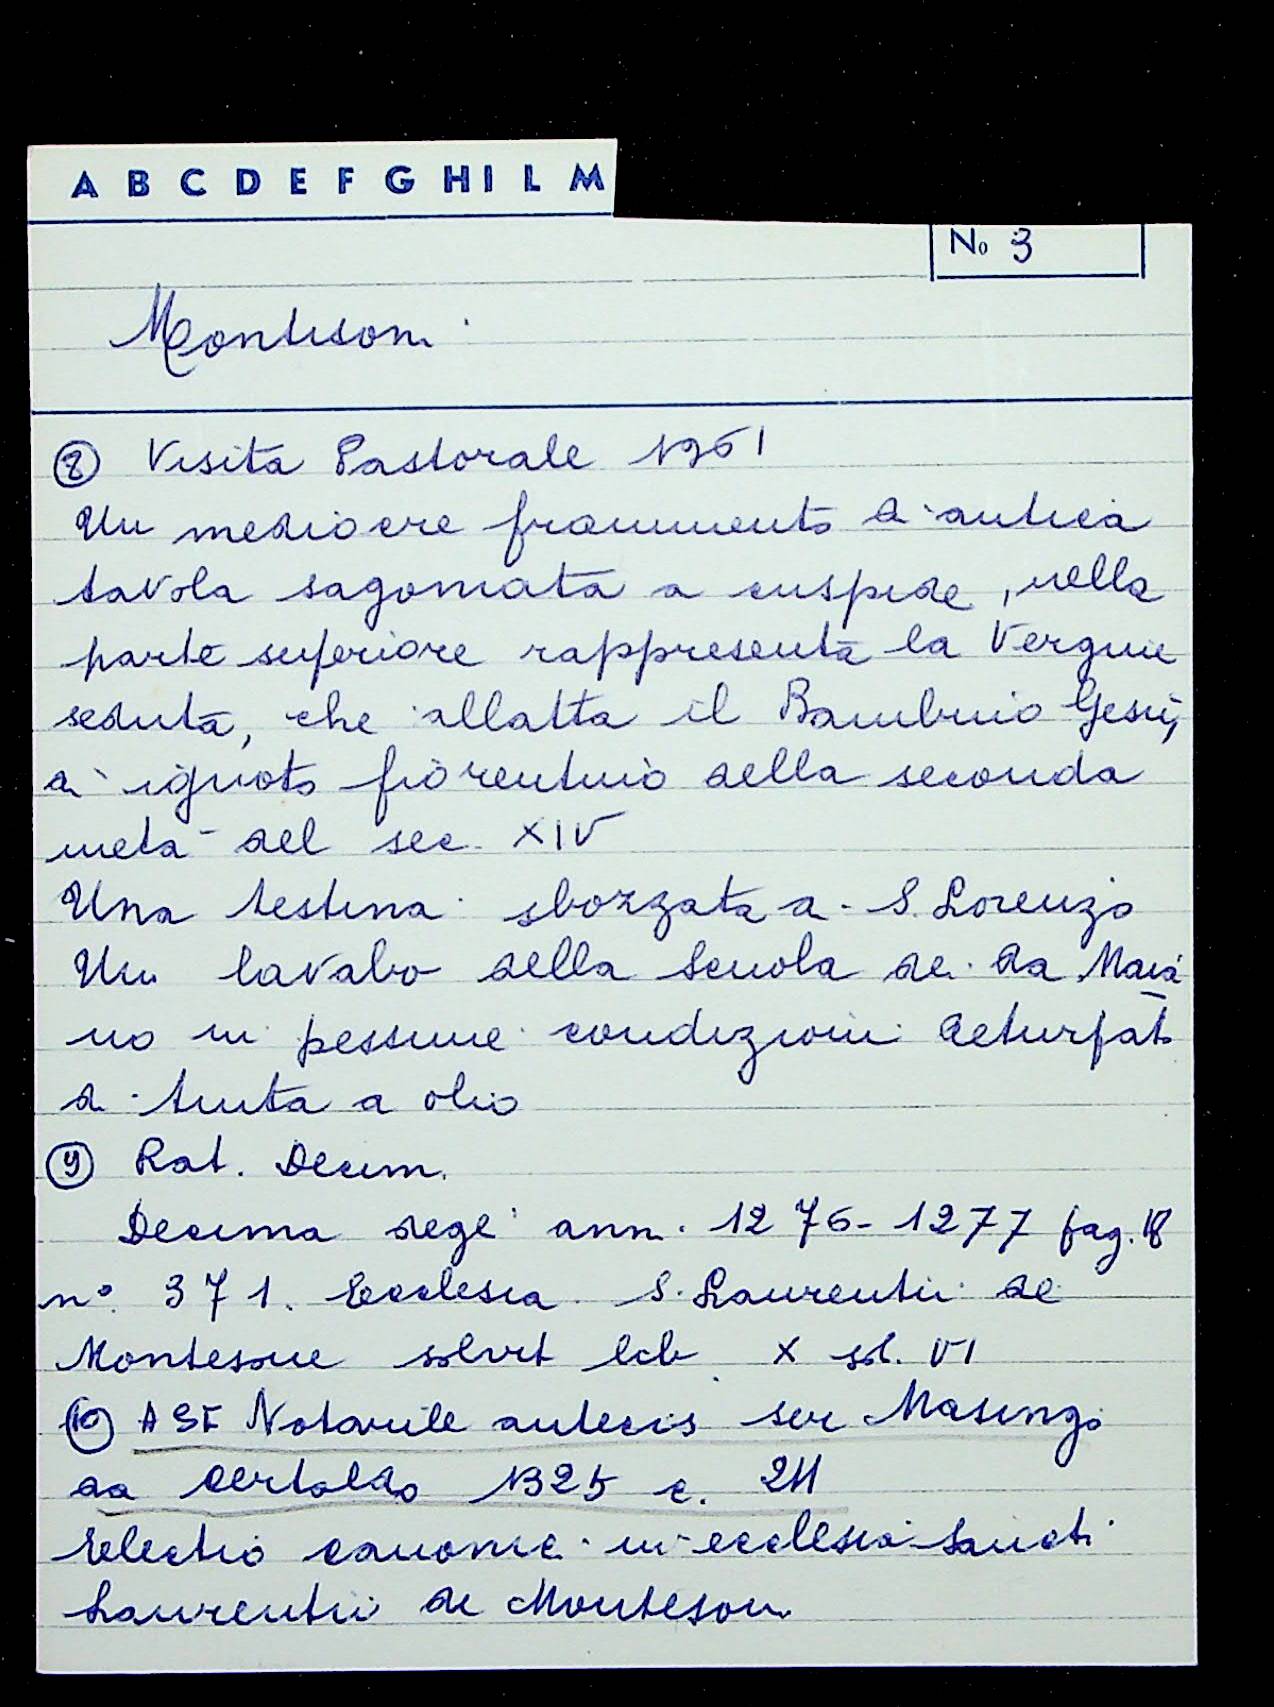 A B C D E F G H I L M
No 3
Montisoni
8 Visita Pastorale 1961
Un mediocre frammento di antica
tavola sagomata a cuspide, nella
parte superiore rappresenta la Vergine
seduta, che allatta il Bambino Gesù,
di ignoto fiorentino della seconda
metà del sec. XIV
Una testina sbozzata a S. Lorenzo
Un lavabo della scuola dei da Maia
no in pessime condizioni deturpato
di tinta a olio
9 Rat. Decim.
Decima degl' ann. 1276-1277 pag. 18
n°. 371. Ecclesia S. Laurentii de
Montesone solvit lib X sol. VI
10 ASF Notarile antecos ser Masingo
da Certaldo B25 c. 211
Electio canonic. in ecclesia Sancti
Laurentii de Montesoni